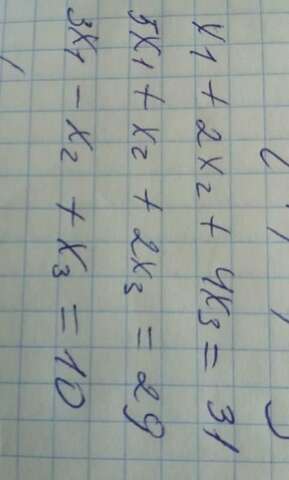 x1 + 2x2 + 4x3 = 31
5x1 + x2 + 2x3 = 29
3x1 - x2 + x3 = 10